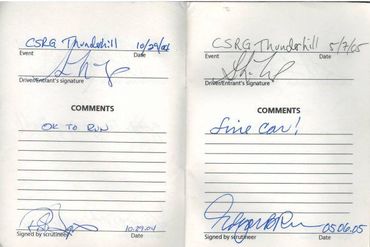 CSRG Thunderhill 10/29/04
Event Date
Driver/Entrant's signature
COMMENTS
OK TO RUN
10.29.04
Signed by scrutineer Date
CSRG Thunderhill 5/7/05
Event Date
Driver/Entrant's signature
COMMENTS
fine car!
05.06.05
Signed by scrutineer Date